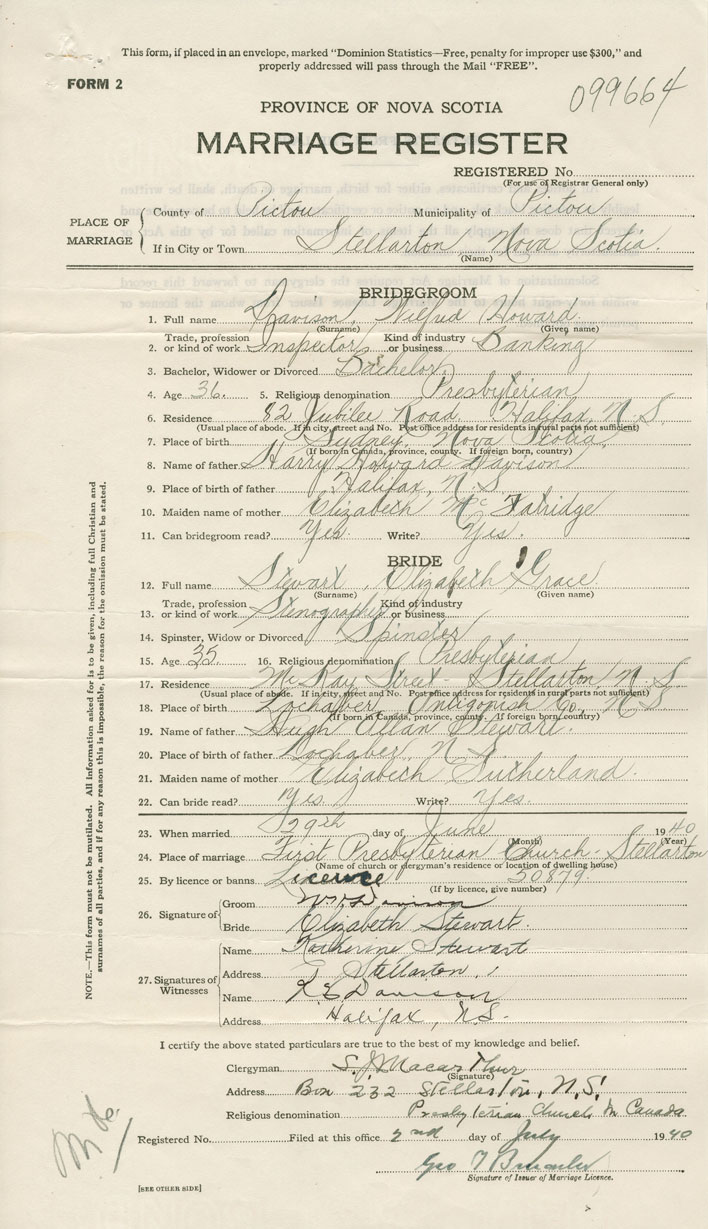 This form, if placed in an envelope, marked "Dominion Statistics—Free, penalty for improper use $300," and
properly addressed will pass through the Mail "FREE".
FORM 2
099664
PROVINCE OF NOVA SCOTIA
MARRIAGE REGISTER
REGISTERED No.
(For use of Registrar General only)
PLACE OF MARRIAGE
County of Pictou Municipality of Pictou
If in City or Town Stellarton, Nova Scotia.
(Name)
BRIDEGROOM
1. Full name Davison, Wilfred Howard.
(Surname) (Given name)
2. Trade, profession or kind of work Inspector Kind of industry or business Banking
3. Bachelor, Widower or Divorced Bachelor
4. Age 36. 5. Religious denomination Presbyterian
6. Residence 82 Jubilee Road, Halifax, N.S.
(Usual place of abode. If in city, street and No. Post office address for residents in rural parts not sufficient)
7. Place of birth Sydney, Nova Scotia.
(If born in Canada, province, county. If foreign born, country)
8. Name of father Harry Howard Davison
9. Place of birth of father Halifax, N.S.
10. Maiden name of mother Elizabeth Mc Fatridge
11. Can bridegroom read? Yes. Write? Yes.
BRIDE
12. Full name Stewart, Elizabeth Grace
(Surname) (Given name)
13. Trade, profession or kind of work Stenographer Kind of industry or business
14. Spinster, Widow or Divorced Spinster
15. Age 35. 16. Religious denomination Presbyterian
17. Residence McKay Street - Stellarton, N.S
(Usual place of abode. If in city, street and No. Post office address for residents in rural parts not sufficient)
18. Place of birth Lochaber, Antigonish Co., N.S
(If born in Canada, province, county. If foreign born, country)
19. Name of father Hugh Allan Stewart.
20. Place of birth of father Lochaber, N.S
21. Maiden name of mother Elizabeth Sutherland.
22. Can bride read? Yes. Write? Yes.
23. When married 29th day of June 1940
(Month) (Year)
24. Place of marriage First Presbyterian Church - Stellarton
(Name of church or clergyman's residence or location of dwelling house)
25. By licence or banns Licence 50879
(If by licence, give number)
26. Signature of
Groom Davison
Bride Elizabeth Stewart.
27. Signatures of Witnesses
Name Katherine Stewart
Address Stellarton.
Name Davison
Address Halifax, N.S.
I certify the above stated particulars are true to the best of my knowledge and belief.
Clergyman S. J. Macarthur
(Signature)
Address Box 232 Stellarton, N.S.
Religious denomination Presbyterian Church in Canada
Registered No. Filed at this office 2nd day of July 1940
Geo
Signature of Issuer of Marriage Licence.
[SEE OTHER SIDE]
NOTE.—This form must not be mutilated. All information asked for is to be given, including full Christian and
surnames of all parties, and if for any reason this is impossible, the reason for the omission must be stated.